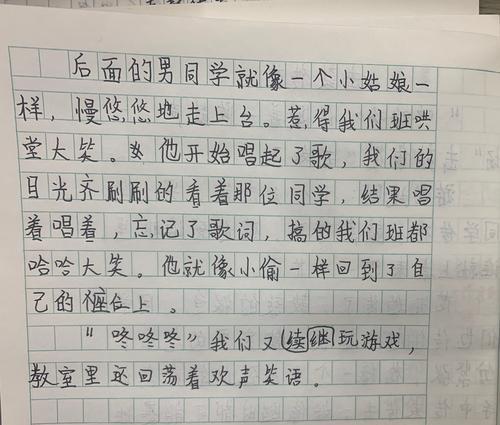 后面的男同学就像一个小姑娘一
样，慢悠悠地走上台。惹得我们班哄
堂大笑。他开始唱起了歌，我们的
目光齐刷刷的看着那位同学，结果唱
着唱着，忘记了歌词，搞的我们班都
哈哈大笑。他就像小偷一样回到了自
己的座位上。
“咚咚咚”我们又续继玩游戏，
教室里还回荡着欢声笑语。